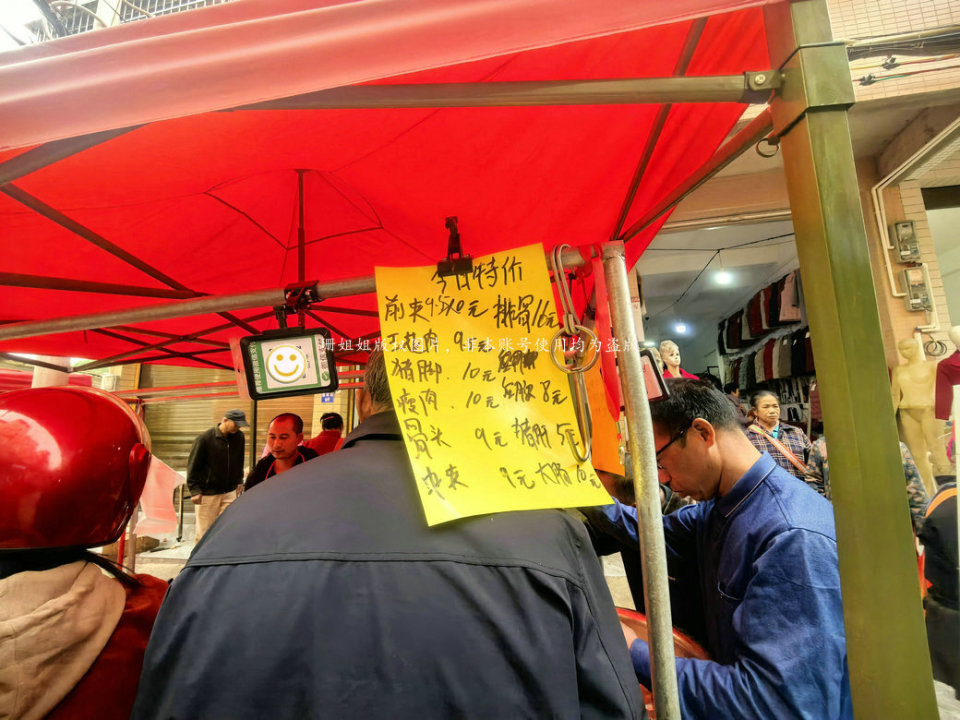 今日特价
前夹9.5元 排骨16元
五花肉 9元
珊姐姐版权图片,非本账号使用均为盗版
猪脚 10元
瘦肉 10元 8元
骨头 9元 猪肝5元
中夹 9元 大肠10元